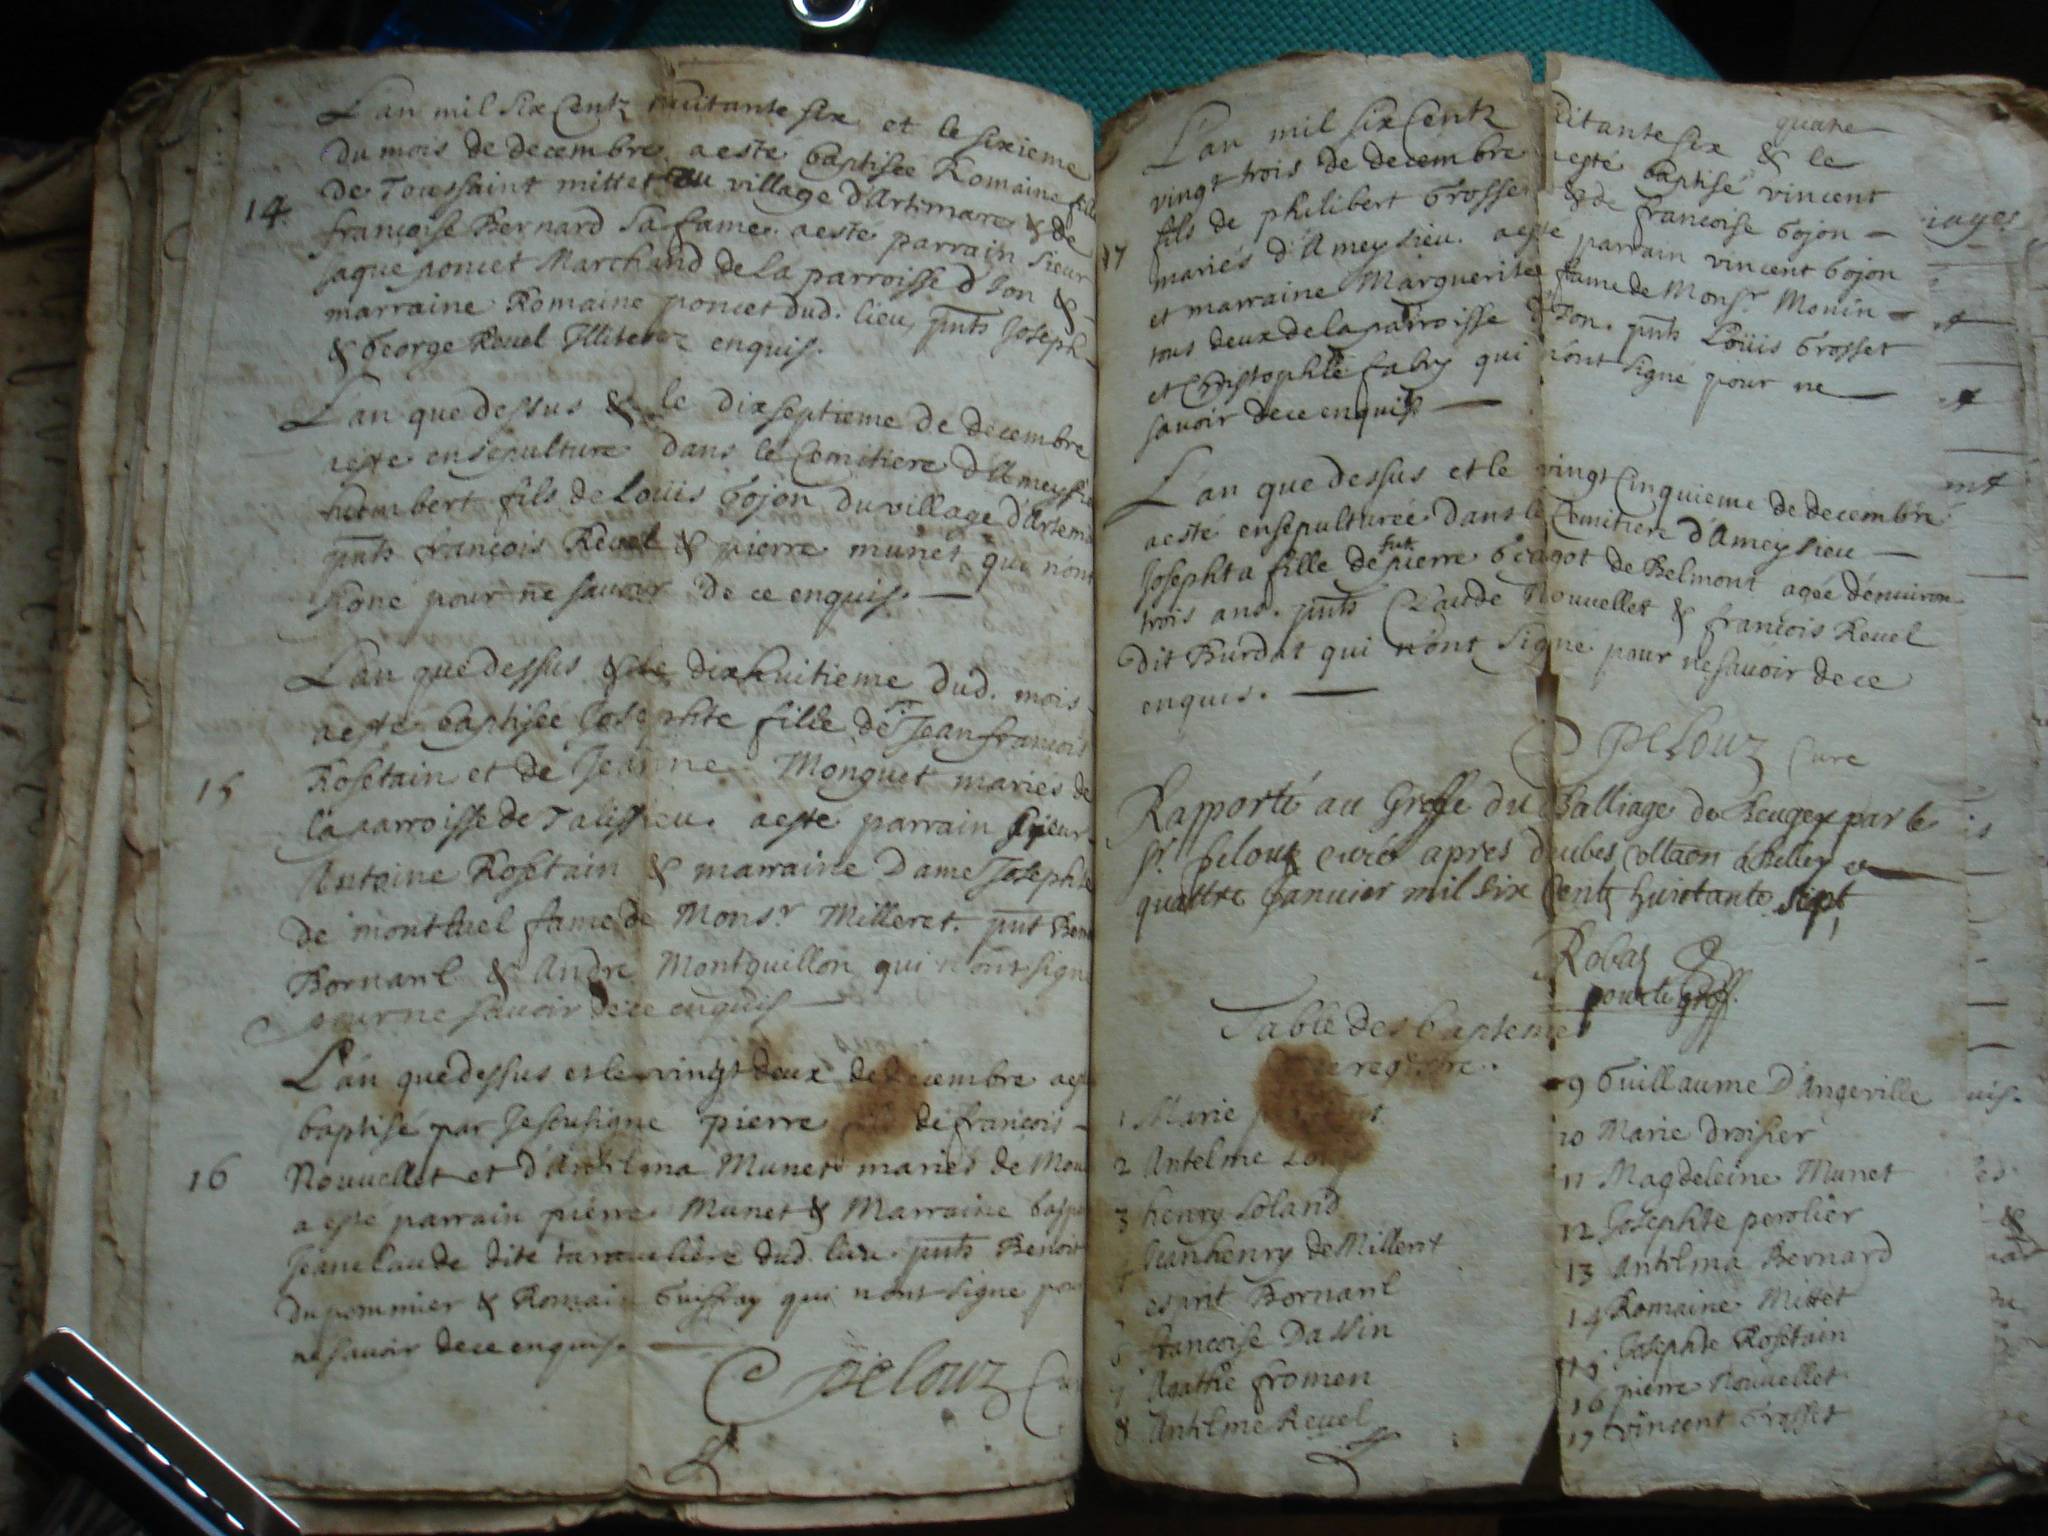 L'an mil six Centz huitante six et le sixieme
du mois de decembre aesté baptisée Romaine fille
14 de Toussaint mittet du village d'Artimare & de
françoise Bernard sa fame. aesté parrain sieur
Jaque poncet Marchand de la parroisse d'Ion &
marraine Romaine poncet dud. lieu, pnts Joseph
& George Reuel Illiterez enquis.
L'an que dessus & le dixseptieme de decembre
aeste ensepulturé dans le Cemitiere d'Ameysieu
humbert fils de Loüis Gojon du village d'Artema
pnts françois Reuel & pierre munet qui n'ont
signé pour ne sauoir de ce enquis.
L'an que dessus & le dixhuitieme dud. mois
aeste baptisée Josephte fille de Sr Jean françois
15 Rosetain et de Jeanne Monguet mariés de
la parroisse de Talissieu. aeste parrain sieur
Antoine Rosetain & marraine Dame Josephte
de montluel fame de Monsr. Milleret. pnt Ben
Bornarel & Andre Montquillon qui n'ont signé
pour ne sauoir de ce enquis
L'an que dessus et le vingt deux de decembre aesté
baptisé par Je sousigne pierre fils de françois
16 Nouuellet et d'Antelma Munet mariés de Mou
a esté parrain pierre Munet & Marraine Gaspa
Jeanclaude dite tarauelière dud. lieu. pnts Benoit
dupommier & Romain Guiffray qui n'ont signe pour
ne sauoir de ce enquis.
Pelouz Cur
L'an mil six Centz huitante six & le
quatre
vingt trois de decembre aesté baptisé vincent
fils de philibert Grosset & de francoise Gojon
17 mariés d'Ameysieu. aesté parrain vincent Gojon
et marraine Marguerite fame de Monsr. Monin
tous deux de la parroisse d'Ion. pnts Loüis Grosset
et Christophle fabry qui n'ont signé pour ne
sauoir de ce enquis
L'an que dessus et le vingt Cinquieme de decembre
aesté ensepulturée dans le Cemitiere d'Ameysieu
Josephta fille de fut pierre Geagot de Belmont agée d'enuiron
trois ans. pnts Claude Nouuellet & françois Reuel
dit Burdat qui n'ont signé pour ne sauoir de ce
enquis.
Pelouz Cure
Rapporté au Greffe du Balliage de Beugey par le
Sr. pelouz curé apres deubes Collaon a Belley ce
quattre Januier mil six Centz huittante sept
Robat
pour le greff.
Table des baptemes
de ce registre.
1 Marie
2 Antelme
3 henry Loland
4 Jeanhenry de Milleret
5 esprit Bornarel
6 francoise Dassin
7 Agathe fromen
8 Antelme Reuel
9 Guillaume D'Angeville
10 Marie droisier
11 Magdeleine Munet
12 Josephte perolier
13 Antelma Bernard
14 Romaine Mittet
15 Josephte Rosetain
16 pierre Nouuellet
17 vincent Grosset